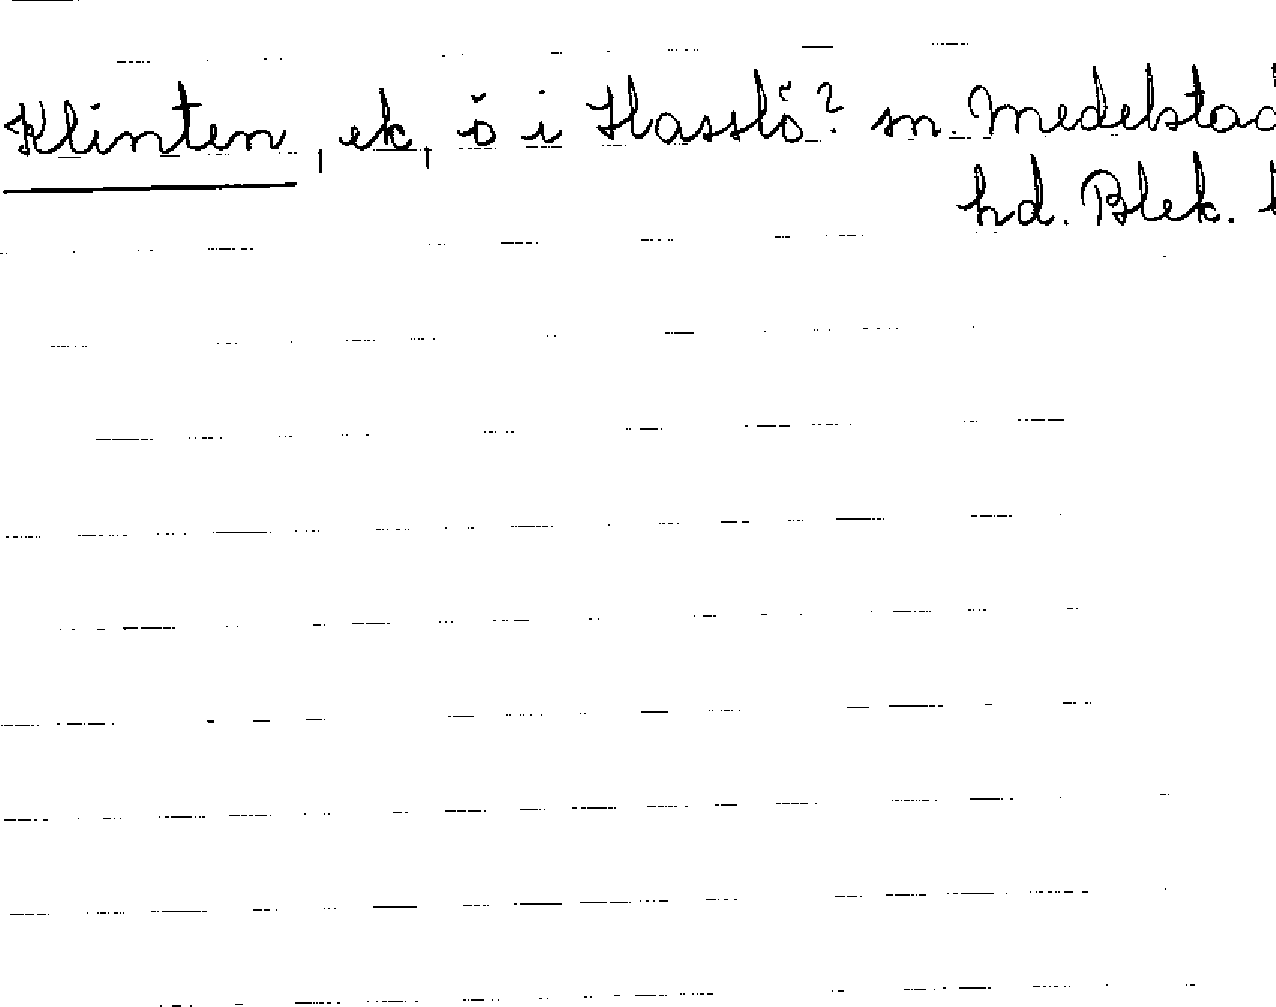 Klinten, ek, ö i Hasslö? sn Medelstad
hd. Blek. l